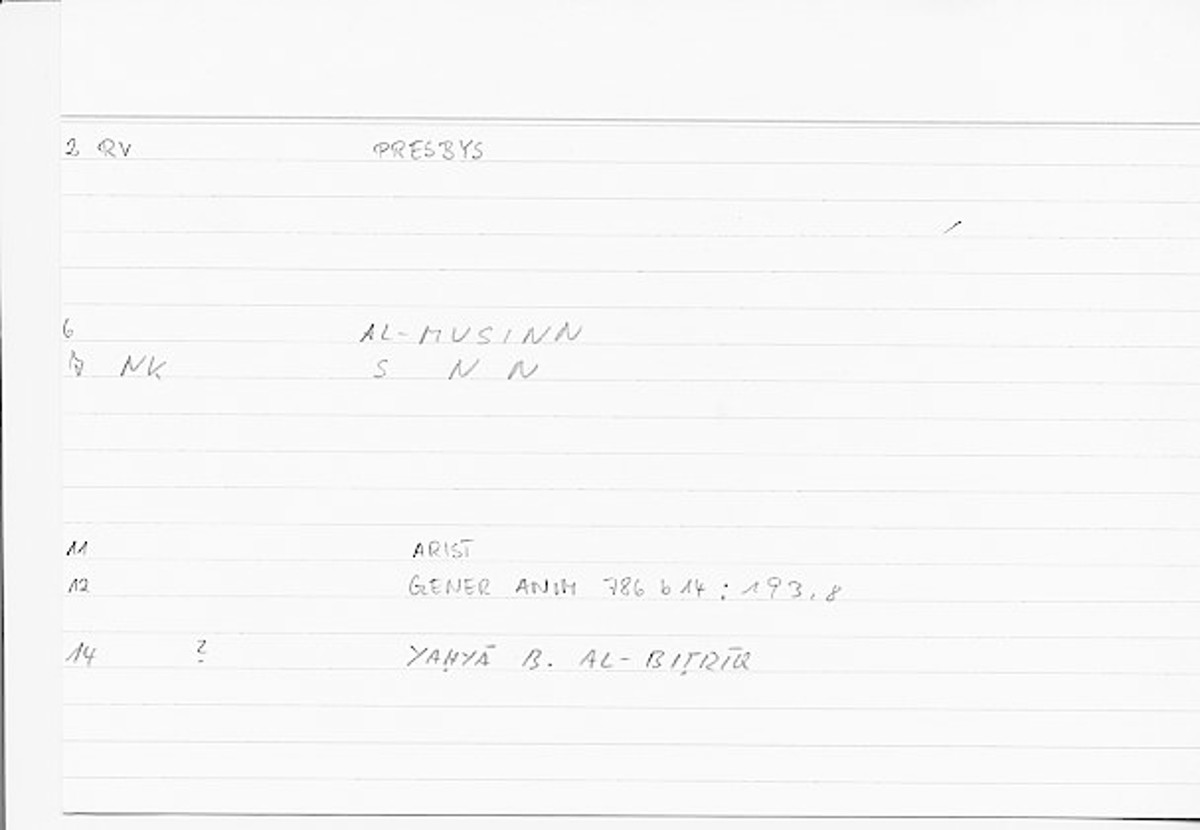 2 RV PRESBYS
6 AL-MUSINN
7 NK S N N
11 ARIST
12 GENER ANIM 786 b 14 : 193,8
14 ? YAḤYĀ B. AL-BIṬRĪQ